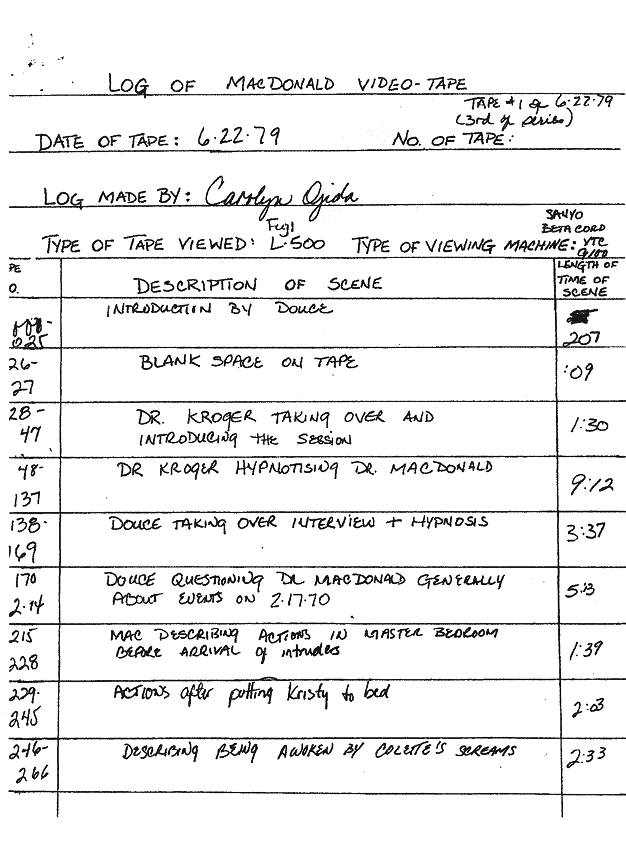 LOG OF MACDONALD VIDEO-TAPE
TAPE #1 of 6.22.79
(3rd of series)
DATE OF TAPE: 6.22.79 NO. OF TAPE:
LOG MADE BY: Carolyn Ojida
Fuji
TYPE OF TAPE VIEWED: L-500 TYPE OF VIEWING MACHINE: SANYO BETA CORD VTC 9100
PE
O. DESCRIPTION OF SCENE LENGTH OF TIME OF SCENE
INTRODUCTION BY DOUCE
025 207
26- BLANK SPACE ON TAPE :09
27
28- DR. KROGER TAKING OVER AND 1:30
47 INTRODUCING THE SESSION
48- DR KROGER HYPNOTISING DR. MACDONALD 9:12
137
138- DOUCE TAKING OVER INTERVIEW + HYPNOSIS 3:37
169
170 DOUCE QUESTIONING DR MACDONALD GENERALLY
2.14 ABOUT EVENTS ON 2.17.70
215 MAC DESCRIBING ACTIONS IN MASTER BEDROOM 1:39
228 BEFORE ARRIVAL of intruders
229- ACTIONS after putting Kristy to bed 2:03
245
246- DESCRIBING BEING AWOKEN BY COLETTE'S SCREAMS 2:33
266